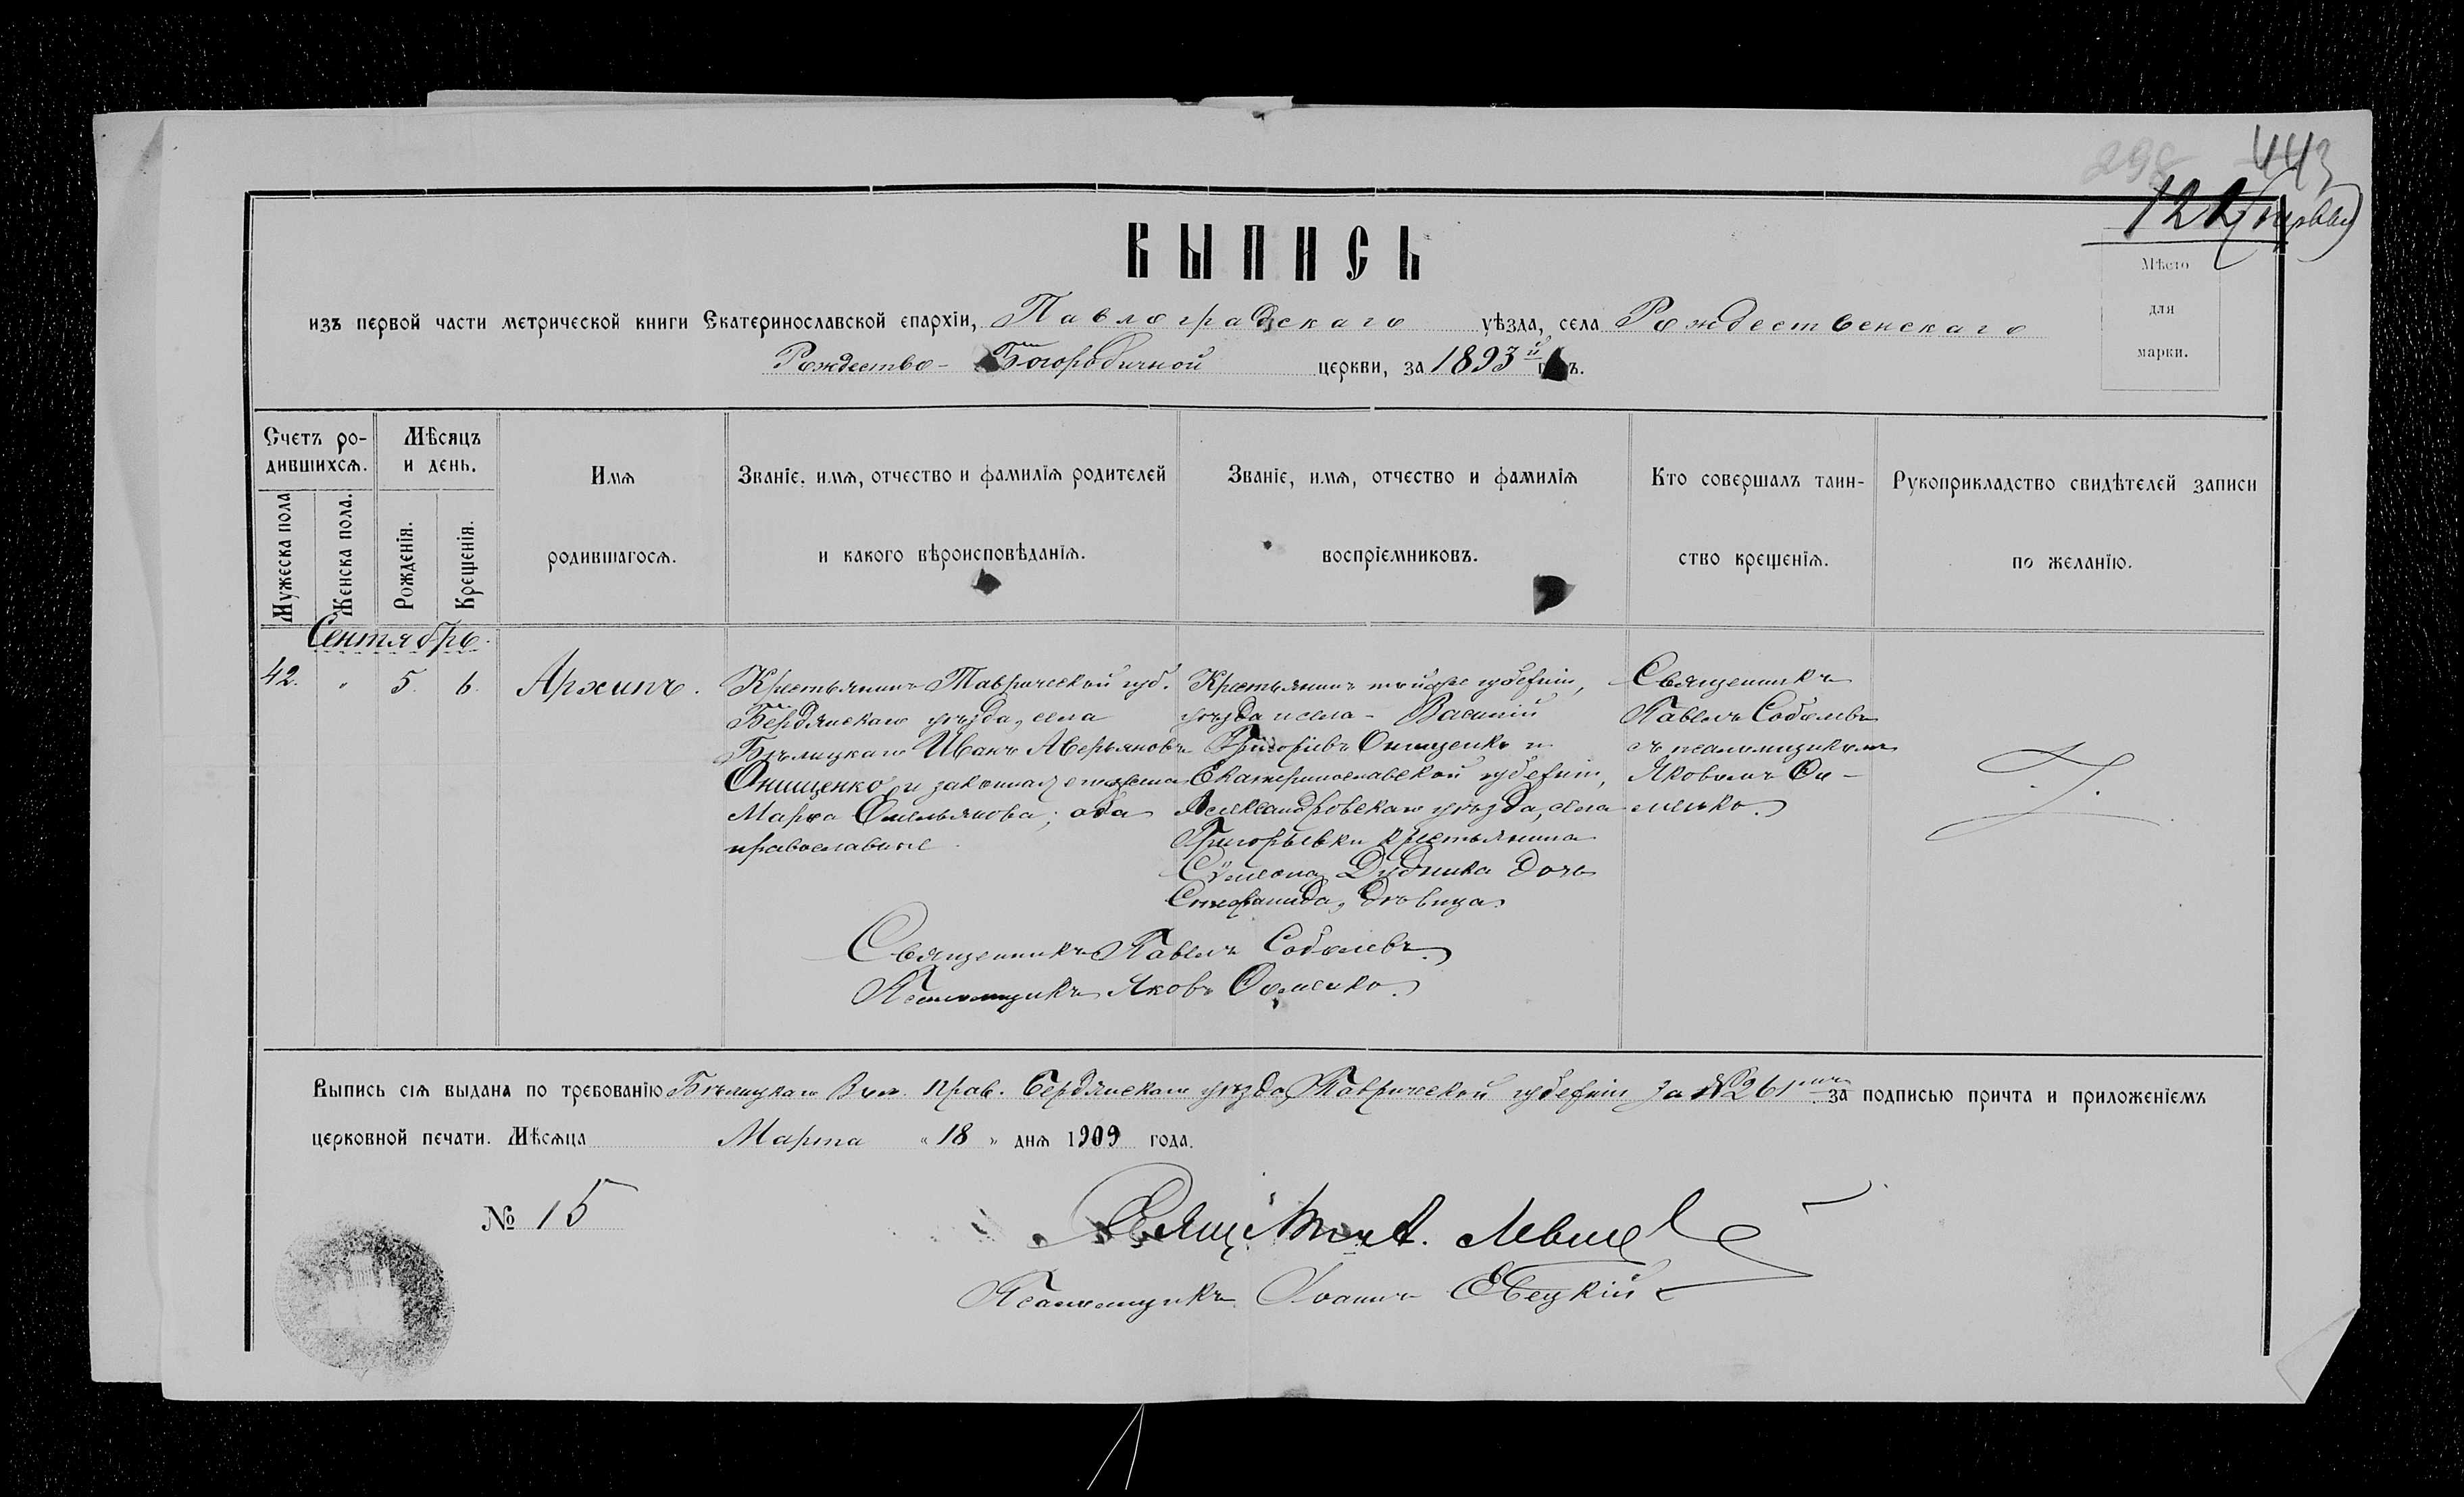 298 443
122 (первый)
ВЫПИСЬ
Мѣсто
для
марки.
изъ первой части метрической книги Екатеринославской епархіи, Павлоградскаго уѣзда, села Рождественскаго
Рождество-Богородичной церкви, за 1893й г ъ.
Счетъ ро-
дившихся.
Мѣсяцъ
и день.
Мужеска пола
Женска пола.
Рожденія.
Крещенія.
Имя
родившагося.
Званіе, имя, отчество и фамилія родителей
и какого вѣроисповѣданія.
Званіе, имя, отчество и фамилія
воспріемниковъ.
Кто совершалъ таин-
ство крещенія.
Рукоприкладство свидѣтелей записи
по желанію.
Сентябрь.
42. " 5. 6. Архипъ.
Крестьянинъ Таврической губ.
Бердянскаго уѣзда, села
Бѣлицкаго Иванъ Аверьяновъ
Онищенко и законная его жена
Марѳа Емельянова; оба
православные
Крестьянинъ той же губерніи,
уѣзда и села - Василій
Григорьевъ Онищенко и
Екатеринославской губерніи,
Александровскаго уѣзда, села
Григорьевки крестьянина
Сѵмеона Дудника дочь
Стефанида, дѣвица.
Священникъ
Павелъ Соболевъ
съ псаломщикомъ
Яковомъ Ѳо-
менко.
Священникъ Павелъ Соболевъ.
Псаломщикъ Яковъ Ѳоменко.
Выпись сія выдана по требованію Бѣлицкаго Вол. Прав. Бердянскаго уѣзда, Таврической губерніи за №261мъ за подписью причта и приложеніемъ
церковной печати. Мѣсяца Марта "18" дня 1909 года.
№ 15
Псаломщикъ Іоаннъ